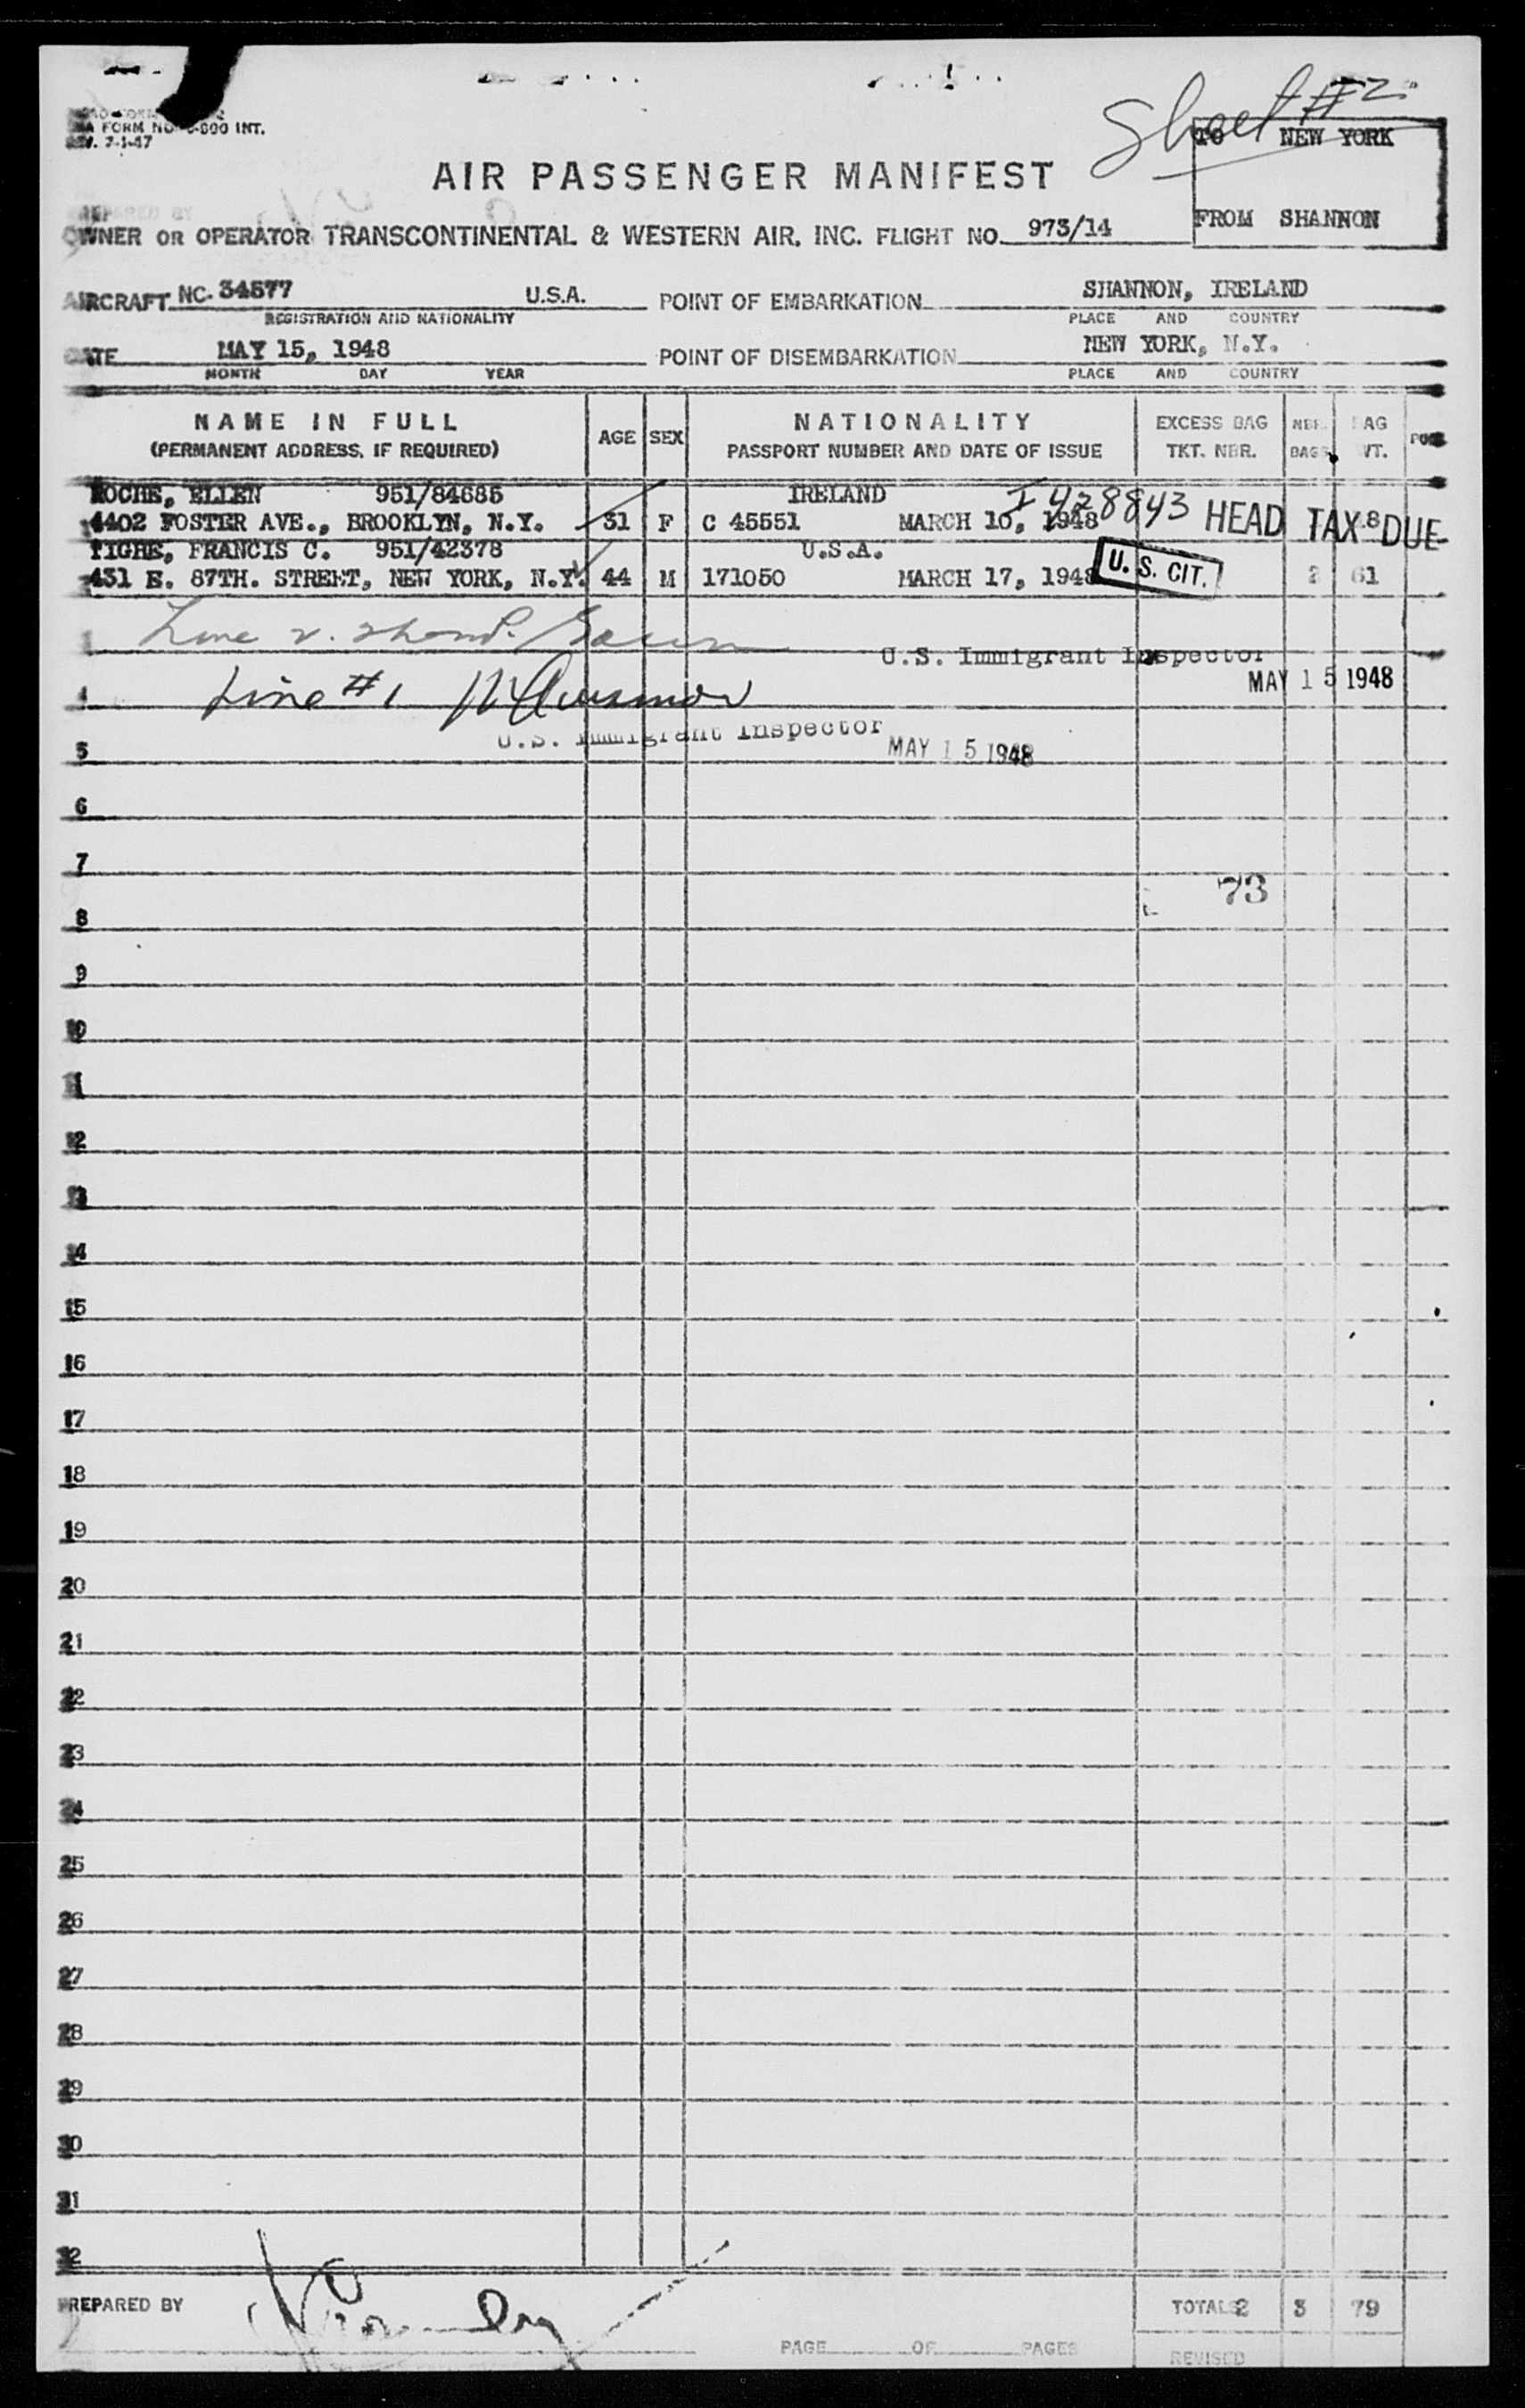 Sheet #2
FORM NO. INT.
7-1-47
TO NEW YORK
AIR PASSENGER MANIFEST
FROM SHANNON
PREPARED BY
OWNER OR OPERATOR TRANSCONTINENTAL & WESTERN AIR, INC. FLIGHT NO. 973/14
AIRCRAFT NC. 34577 U.S.A. POINT OF EMBARKATION SHANNON, IRELAND
REGISTRATION AND NATIONALITY PLACE AND COUNTRY
DATE MAY 15, 1948 POINT OF DISEMBARKATION NEW YORK, N.Y.
MONTH DAY YEAR PLACE AND COUNTRY
NAME IN FULL AGE SEX NATIONALITY EXCESS BAG NBR. BAG
(PERMANENT ADDRESS, IF REQUIRED) PASSPORT NUMBER AND DATE OF ISSUE TKT. NBR. BAGS WT.
ROCHE, ELLEN 951/84685 IRELAND I 428843
4402 FOSTER AVE., BROOKLYN, N.Y. 31 F C 45551 MARCH 10, 1948 HEAD TAX DUE
TIGHE, FRANCIS C. 951/42378 U.S.A.
431 E. 87TH. STREET, NEW YORK, N.Y. 44 M 171050 MARCH 17, 1948 U. S. CIT. 2 61
Line 2.
U.S. Immigrant Inspector
MAY 15 1948
4 Line #1
U.S. Immigrant Inspector
MAY 15 1948
5
6
7
73
8
9
10
11
12
13
14
15
16
17
18
19
20
21
22
23
24
25
26
27
28
29
30
31
32
PREPARED BY TOTALS 2 3 79
PAGE OF PAGES
REVISED